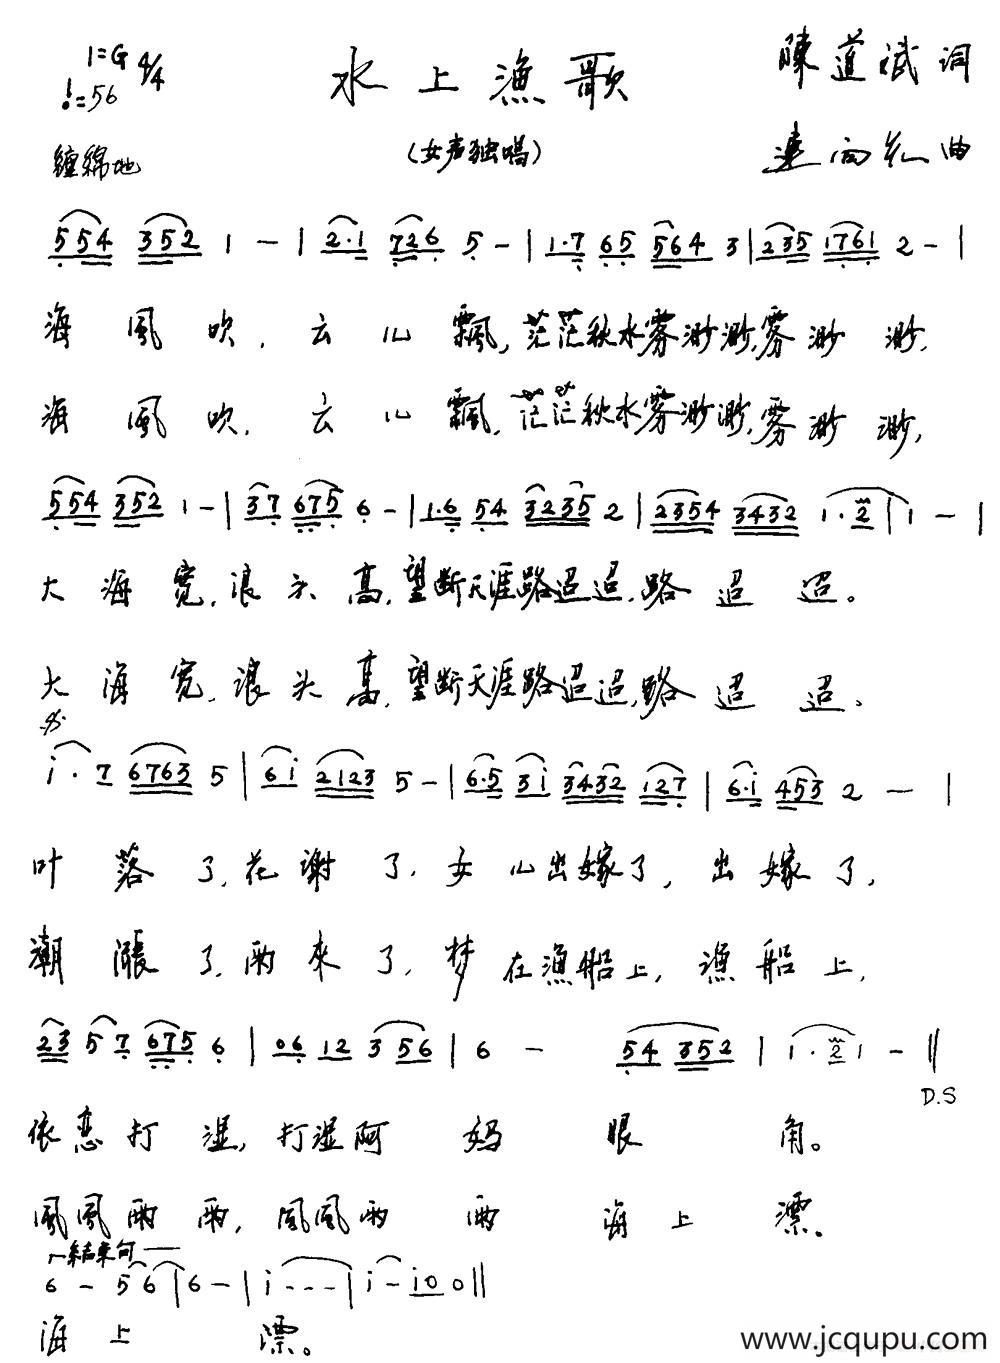 1=G 4/4
♩=56
水上漁歌
陳道斌 词
(女声独唱)
缠綿地
連向先 曲
5 5 4 3 5 2 1 - | 2·1 7 2 6 5 - | 1·7 6 5 5 6 4 3 | 2 3 5 1 7 6 1 2 - |
海風吹,云儿飄,茫茫秋水雾渺渺,雾渺渺,
海風吹,云儿飄,茫茫秋水雾渺渺,雾渺渺,
5 5 4 3 5 2 1 - | 3 7 6 7 5 6 - | 1·6 5 4 3 2 3 5 2 | 2 3 5 4 3 4 3 2 1·2 | 1 - |
大海寛,浪头高,望断天涯路迢迢,路迢迢。
大海宽,浪头高,望断天涯路迢迢,路迢迢。
i·7 6 7 6 3 5 | 6 i 2 1 2 3 5 - | 6·5 3 i 3 4 3 2 1 2 7 | 6·i 4 5 3 2 - |
叶落了,花謝了,女儿出嫁了,出嫁了,
潮漲了,雨來了,梦在漁船上,漁船上,
2 3 5 7 6 7 5 6 | 0 6 1 2 3 5 6 | 6 - 5 4 3 5 2 | 1·2 1 - ‖
D.S
依恋打湿,打湿阿妈眼角。
風風雨雨,風風雨雨海上漂。
结束句
6 - 5 6 | 6 - | i - - - | i - i 0 0 ‖
海上漂。
www.jcqupu.com